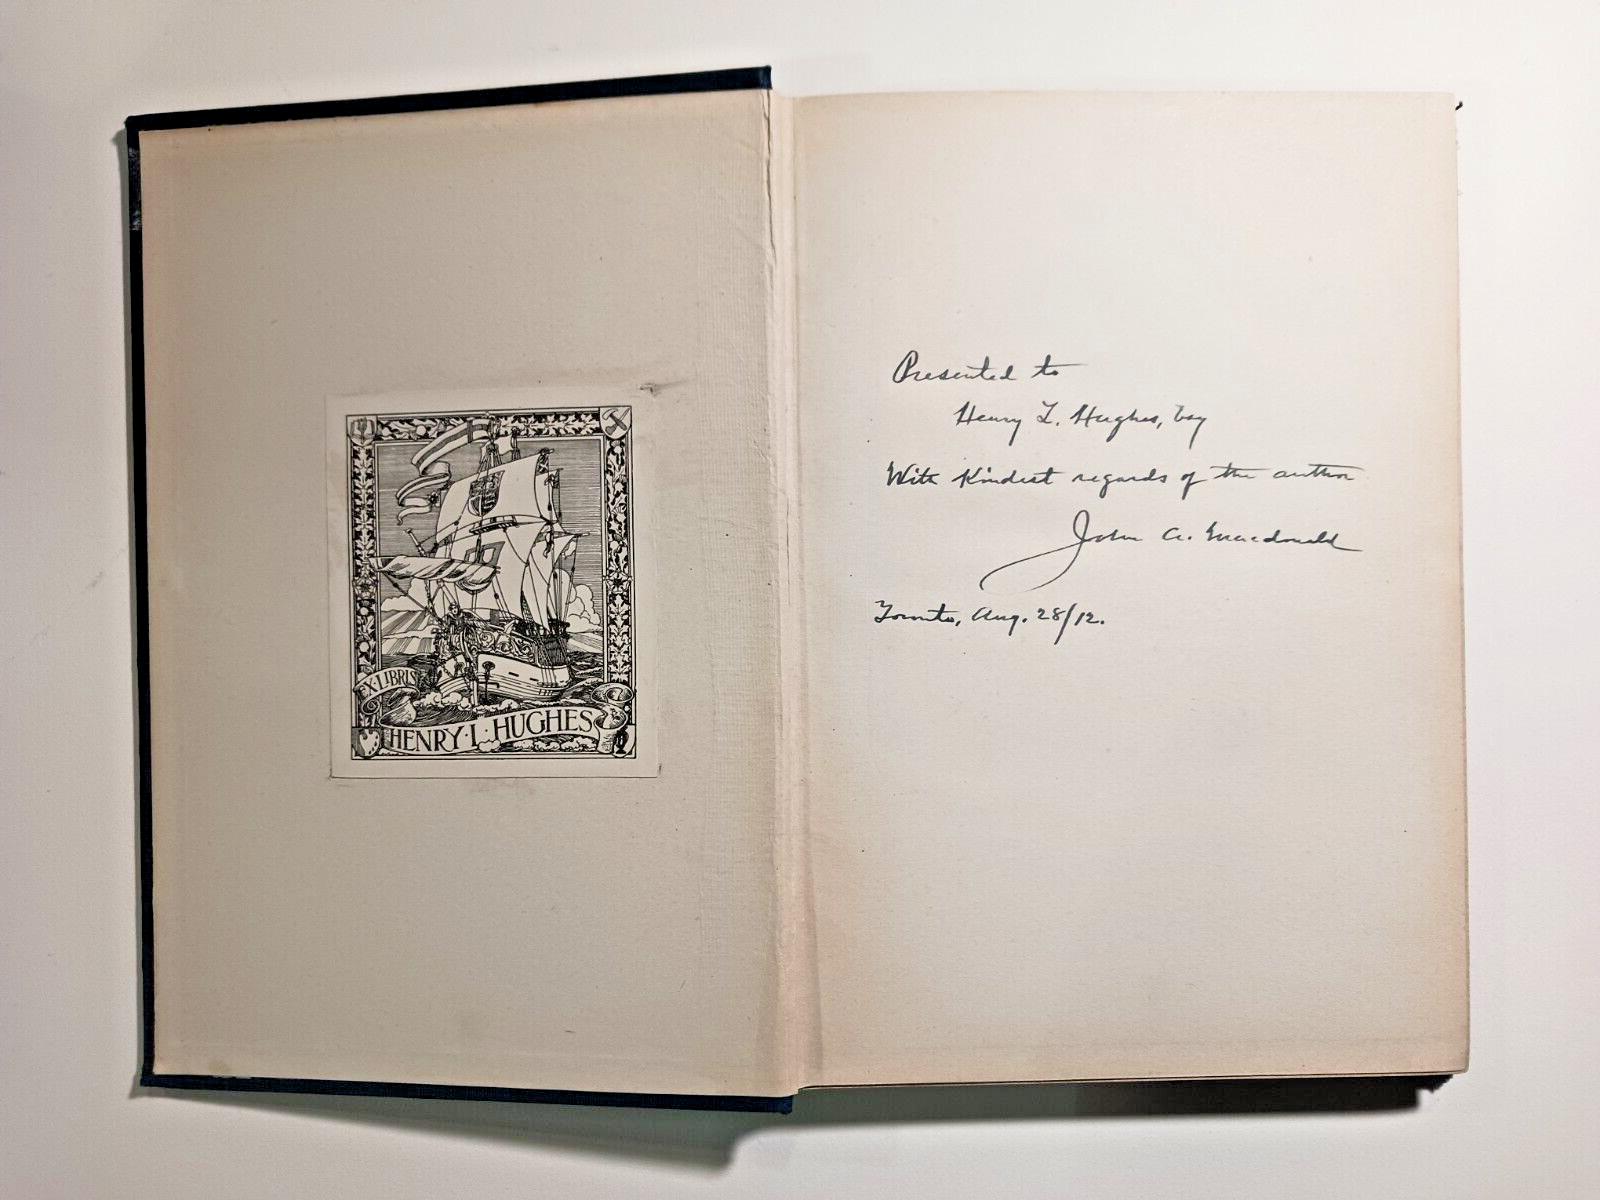 EX·LIBRIS
HENRY·I·HUGHES
Presented to
Henry I. Hughes, Esq
With Kindest regards of the author
John A. Macdonald
Toronto, Aug. 28/12.